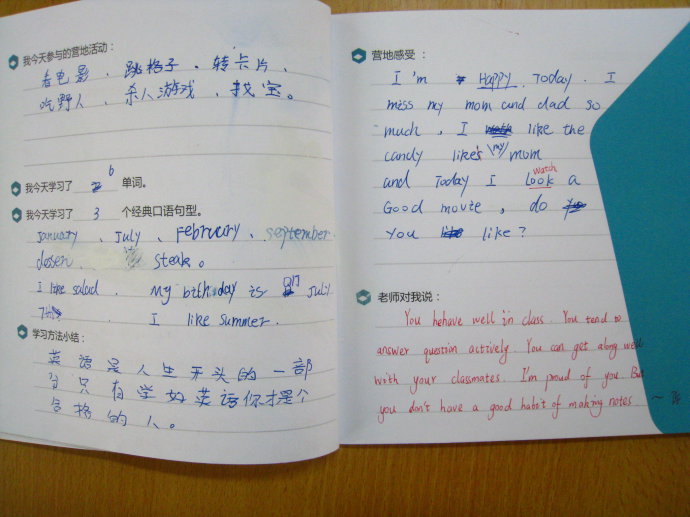 我今天参与的营地活动：
看电影、跳格子、转卡片、
吃野人、杀人游戏、找宝。
我今天学习了 6 单词。
我今天学习了 3 个经典口语句型。
January、July、February、september
desen、 steak。
I like salad. My bithday is July
I like summer.
学习方法小结：
英语是人生开头的一部
分只有学好英语你才是个
合格的人。
营地感受：
I'm Happy Today. I
miss my mom and dad so
much, I like the
candy like's my mom
and Today I look a
watch
Good movte, do
you like?
老师对我说：
You behave well in class. You tend to
answer question actively. You can get along well
with your classmates. I'm proud of you. But
you don't have a good habit of making notes